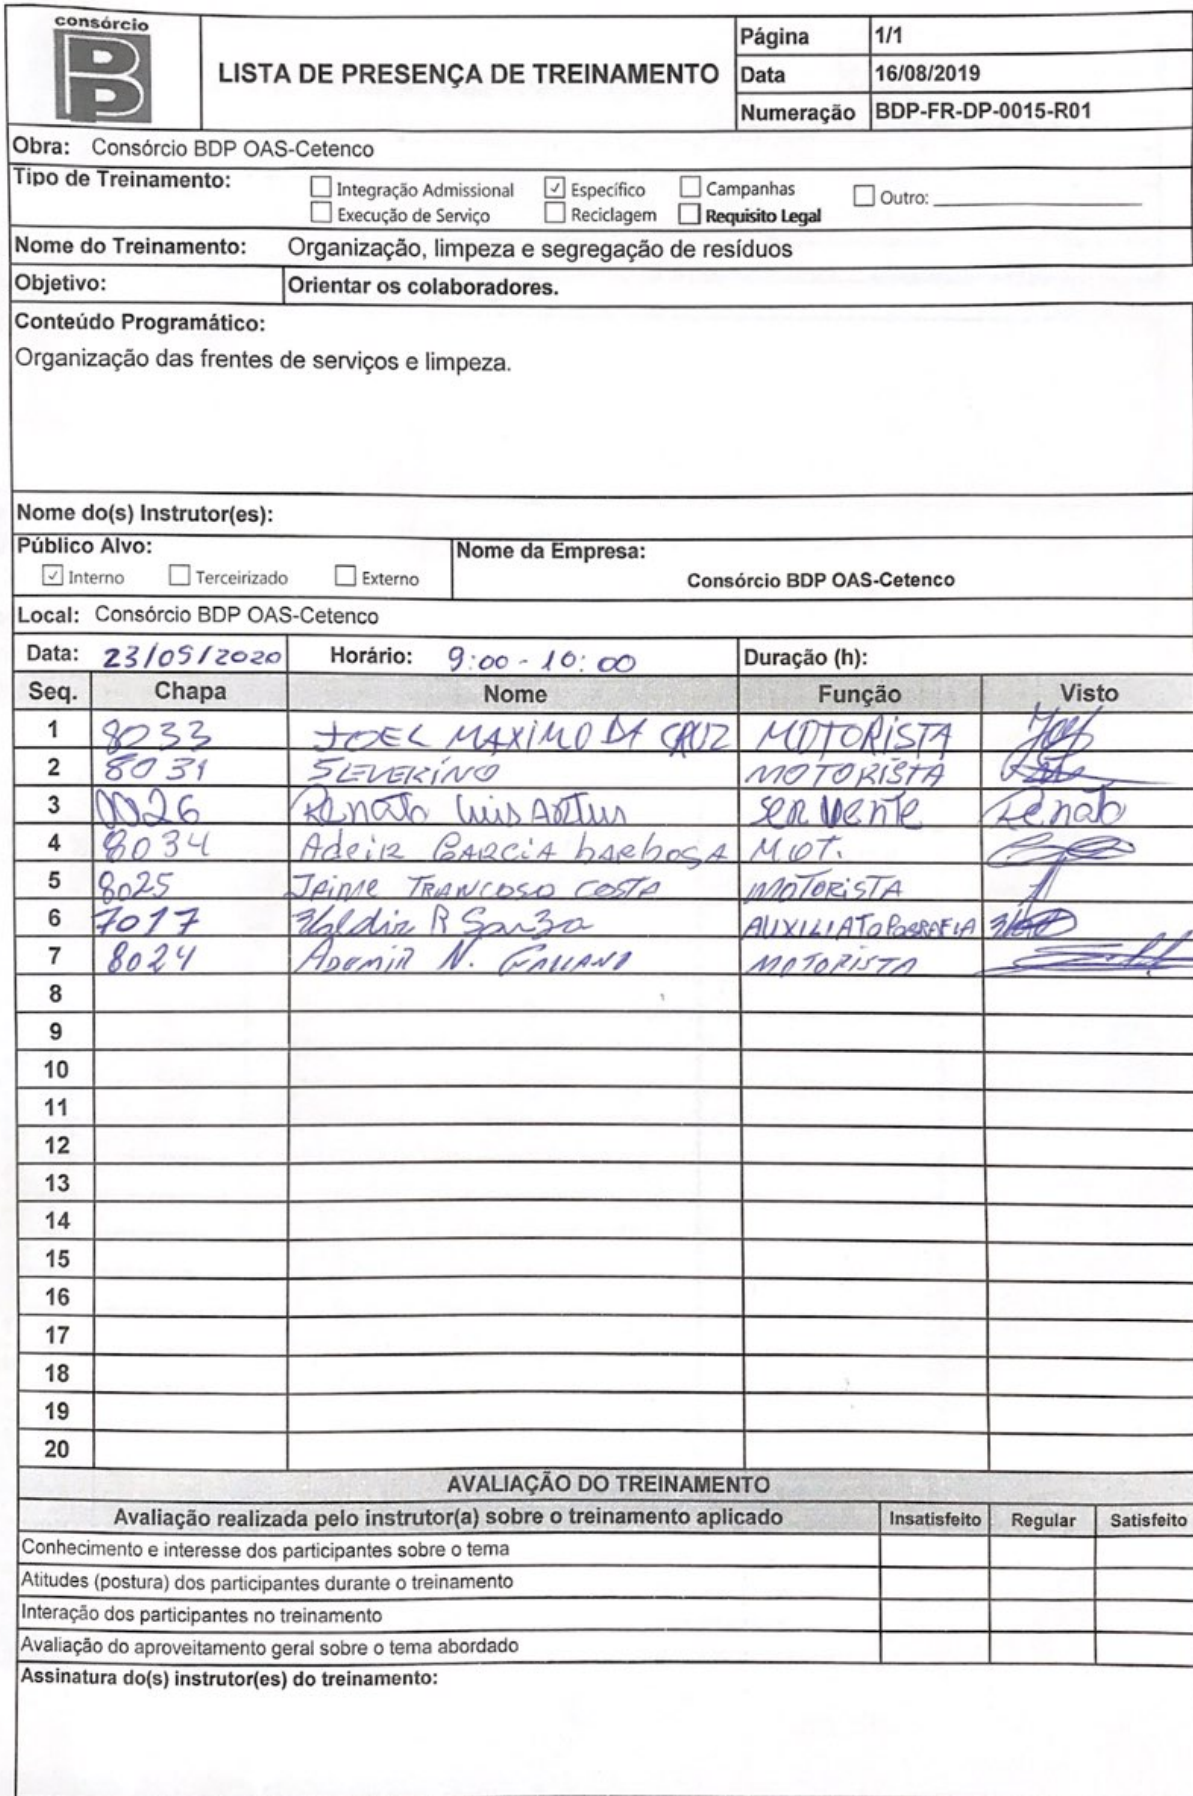 consórcio
LISTA DE PRESENÇA DE TREINAMENTO
Página 1/1
Data 16/08/2019
Numeração BDP-FR-DP-0015-R01
Obra: Consórcio BDP OAS-Cetenco
Tipo de Treinamento:
Integração Admissional Específico Campanhas Outro:
Execução de Serviço Reciclagem Requisito Legal
Nome do Treinamento: Organização, limpeza e segregação de resíduos
Objetivo: Orientar os colaboradores.
Conteúdo Programático:
Organização das frentes de serviços e limpeza.
Nome do(s) Instrutor(es):
Público Alvo: Nome da Empresa:
Interno Terceirizado Externo Consórcio BDP OAS-Cetenco
Local: Consórcio BDP OAS-Cetenco
Data: 23/05/2020 Horário: 9:00 - 10:00 Duração (h):
Seq. Chapa Nome Função Visto
1 8033 JOEL MAXIMO DA CRUZ MOTORISTA
2 8031 SEVERINO MOTORISTA
3 0026 Renato Luis servente Renato
4 8034 Adeir GARCIA barbosa MOT.
5 8025 Jaime TRANCOSO COSTA MOTORISTA
6 7017 Valdir R Souza
7 8024 ADEMIR N. MOTORISTA
8
9
10
11
12
13
14
15
16
17
18
19
20
AVALIAÇÃO DO TREINAMENTO
Avaliação realizada pelo instrutor(a) sobre o treinamento aplicado Insatisfeito Regular Satisfeito
Conhecimento e interesse dos participantes sobre o tema
Atitudes (postura) dos participantes durante o treinamento
Interação dos participantes no treinamento
Avaliação do aproveitamento geral sobre o tema abordado
Assinatura do(s) instrutor(es) do treinamento: